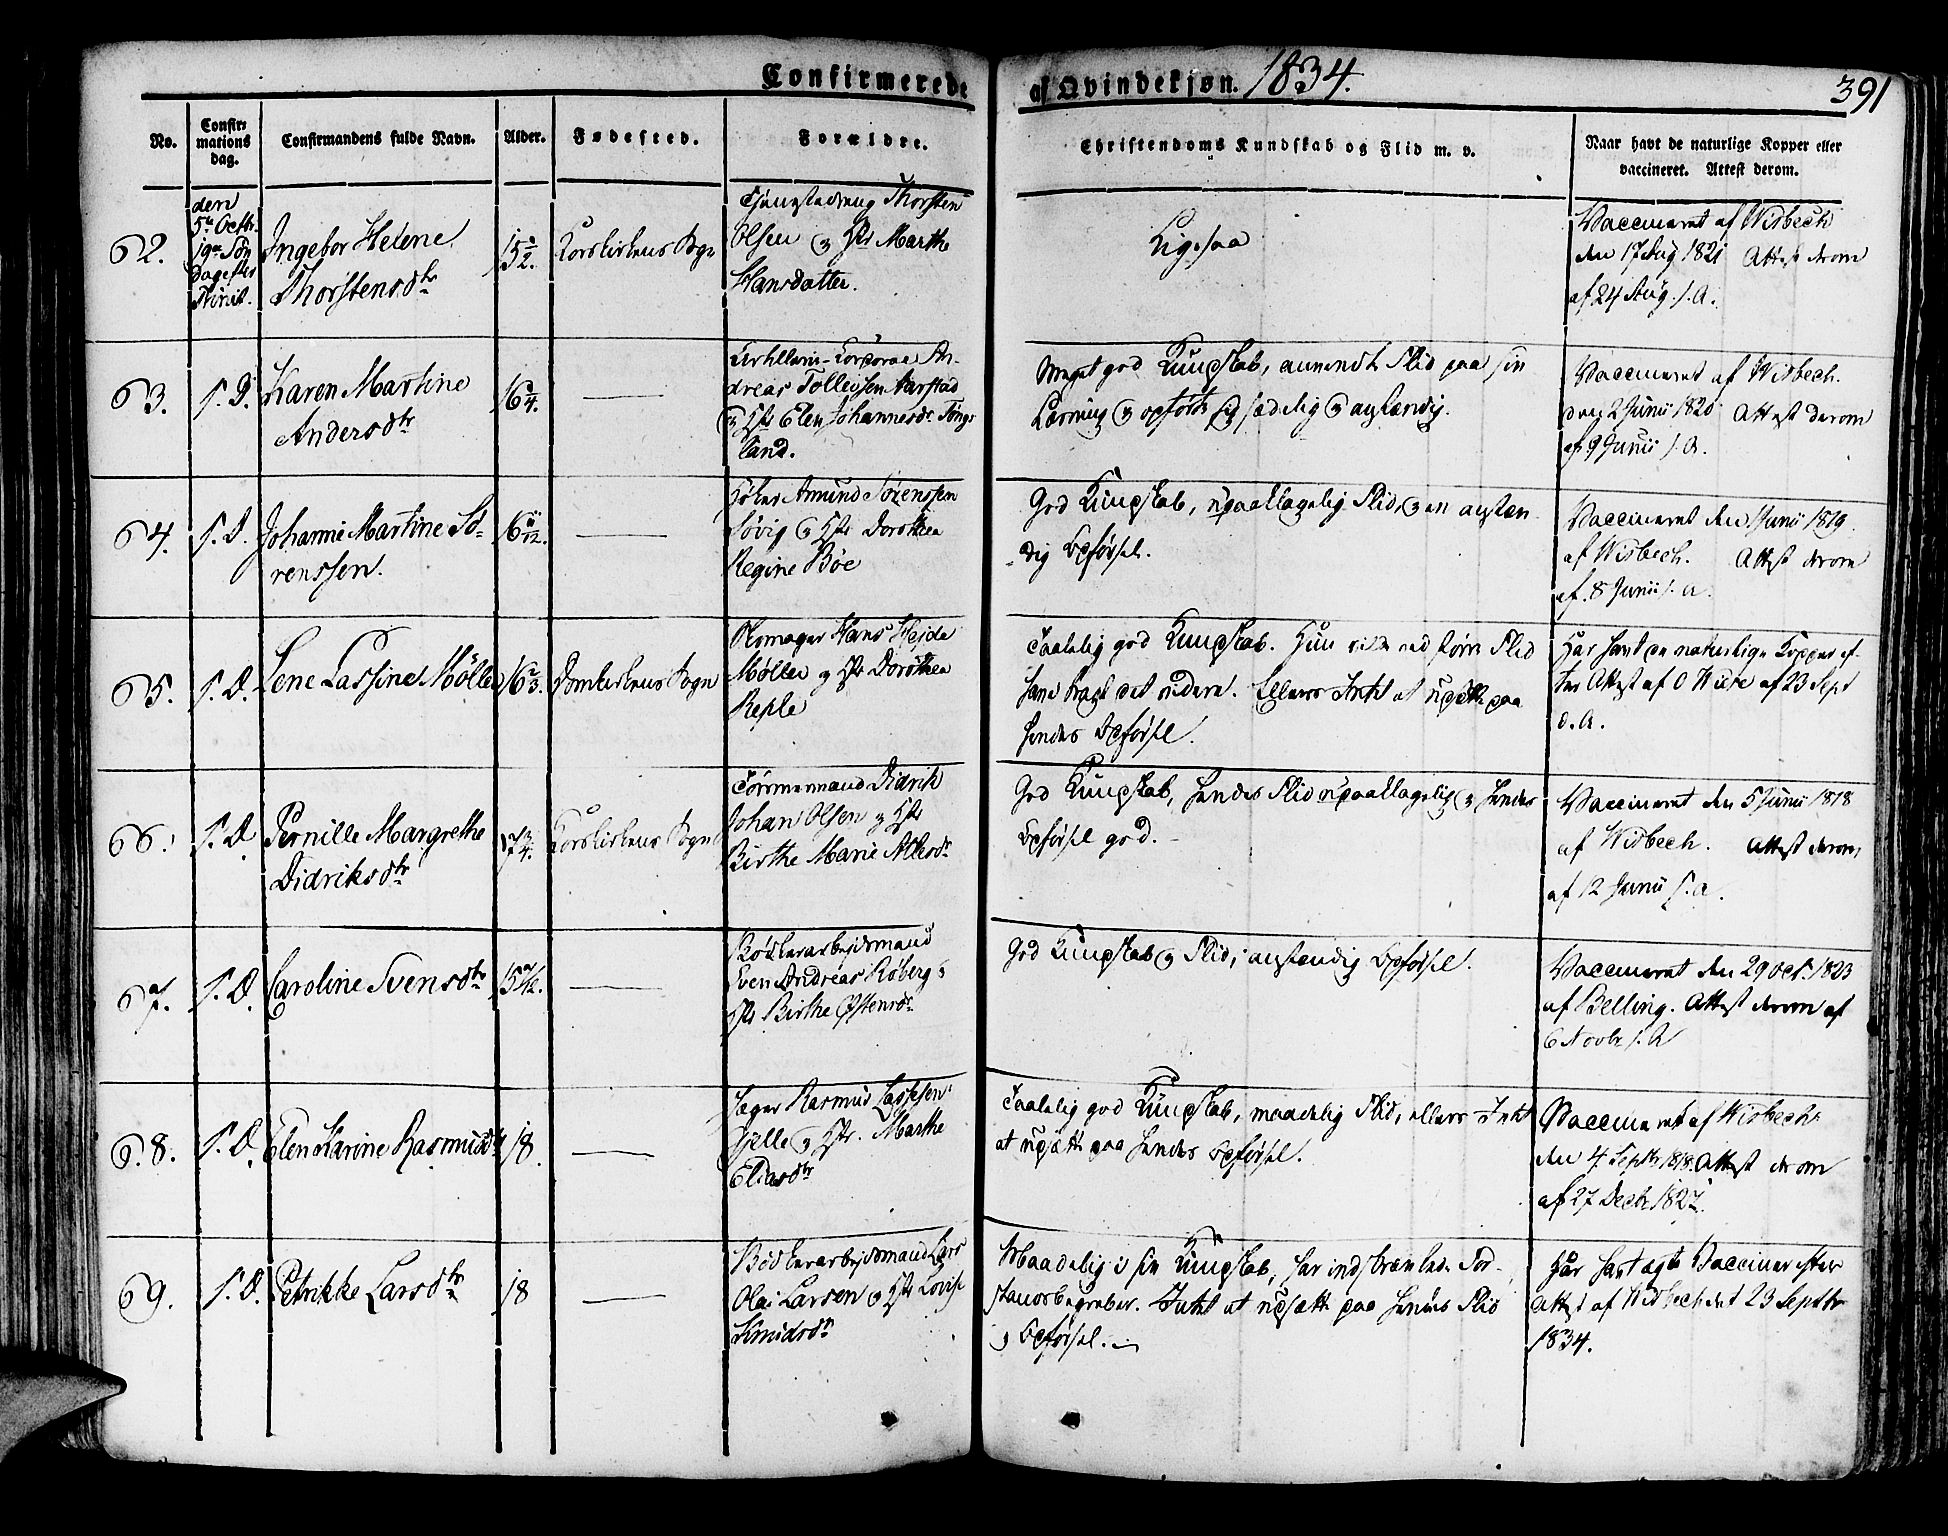 Confirmerede af Qvindekjøn. 1834.
391
No.
Confir-
mations
dag.
Confirmandens fulde Navn.
Alder.
Fødested.
Forældre.
Christendoms Kundskab og Flid m. v.
Naar havt de naturlige Kopper eller
vaccineret. Attest derom.
62.
den
5te Octbr.
19de Søn
dag efter
Trinit.
Ingebor Helene
Thorstensdtr
15 1/2.
Korskirkens Sogn
Thorsten
Olsen og Hstr Marthe
Hansdatter.
Ligesaa
Vaccineret af Wisbech
den 17 Aug 1821 Attest derom
af 24 Aug. s. A.
63.
S. D.
Karen Martine
Andersdtr
16 3/4.
Corporal An-
dreas Tollefsen Aarstad
og Hstr Elen Johannesdr Tongs
land.
Meget god Kundskab, anvendt Flid paa sin
Lærning og opført sig sædelig og anstændig.
Vaccineret af Wisbech.
den 2 Junii 1820 Attest derom
af 9 Junii s. A.
64.
S. D.
Johanne Martine Sø-
renssen.
16 11/12.
Høker Amund Sørenssen
Løvig og Hstr Dorothea
Regine Bøe
God Kundskab, upaaklagelig Flid, og en anstæn-
dig Opførsel.
Vaccineret den 1 Junii 1819.
af Wisbech. Attest derom
af 8 Junii s. A.
65.
S. D.
Lene Lassine Møller
16 2/3.
Domkirkens Sogn
Skomager Hans Hejde
Møller og Hstr Dorothea
Reple
Taalelig god Kundskab. Hun vilde ved større Flid
have bragt det videre. Ellers Intet at udsætte paa
hendes Opførsel.
Har havt de naturlige Kopper ef-
ter Attest af O Wiese af 23 Sept
d. A.
66.
S. D
Pernille Margrethe
Didriksdtr
17 3/4.
Korskirkens Sogn
Tømmermand Didrik
Johan Olsen og Hstr
Birthe Marie Atlesdr
God Kundskab, hendes Flid upaaklagelig og hendes
Opførsel god.
Vaccineret den 5 Junii 1818
af Wisbech. Attest derom
af 12 Junii s. a.
67.
S. D.
Caroline Svensdtr
15 7/12.
Bødkerarbejdsmand
Sven Andreas Røberg og
Hstr Birthe Ostensdr
God Kundskab og Flid, anstændig Opførsel.
Vaccineret den 29 Oct. 1823
af Belling. Attest derom af
6 Novbr s. A
68.
S. D.
Elen Karine Rasmusdtr
18.
Rasmus Lassesen
og Hstr. Marthe
Eliasdtr
Taalelig god Kundskab, maadelig Flid, ellers Intet
at udsætte paa hendes Opførsel.
Vaccineret af Wisbech
den 4 Septbr 1818. Attest derom
af 27 Decbr 1827.
69.
S. D.
Petrikke Larsdtr
18
Bødkerarbejdsmand Lars
Olai Larsen og Hstr Lovise
Knudsdtr
Maadelig i sin Kundskab, har indskrænkede For-
standsbegreber. Intet at udsætte paa hendes Flid
og Opførsel.
Har havt ægte Vacciner efter
Attest af Wisbech det 23 Septbr
1834.